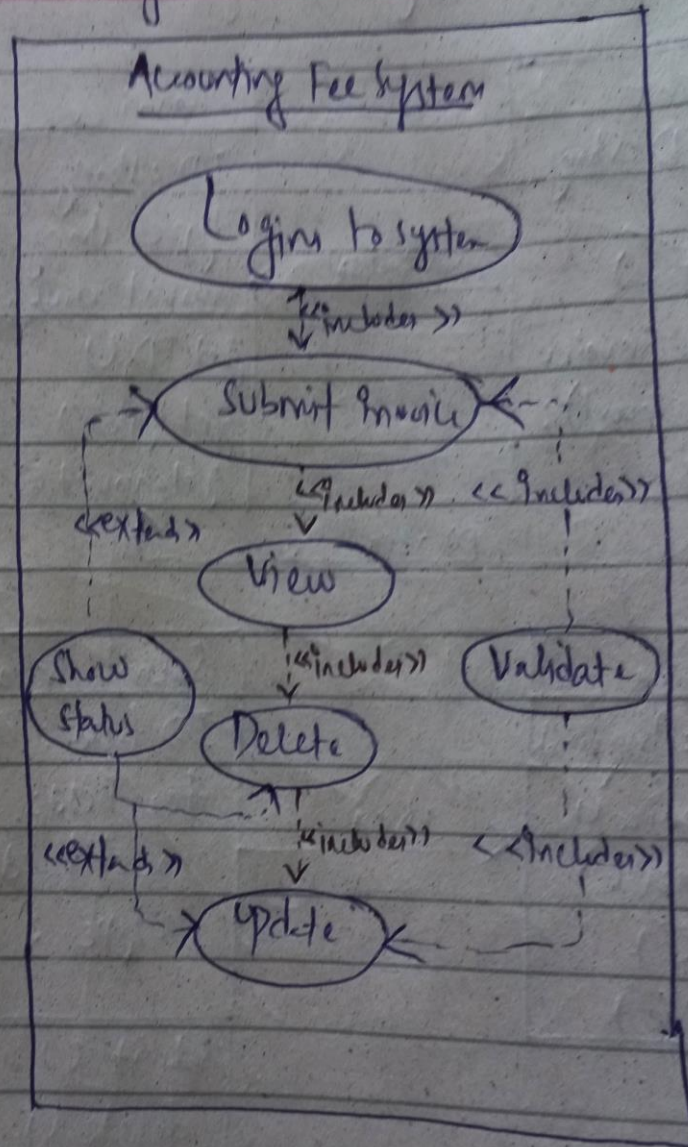 Accounting Fee System
Logins to system
<<includes>>
Submit Invoice
<<Includes>> <<Includes>>
<<extends>>
View
<<includes>>
Show
status
Validate
Delete
<<includes>> <<Includes>>
<<extends>>
Update